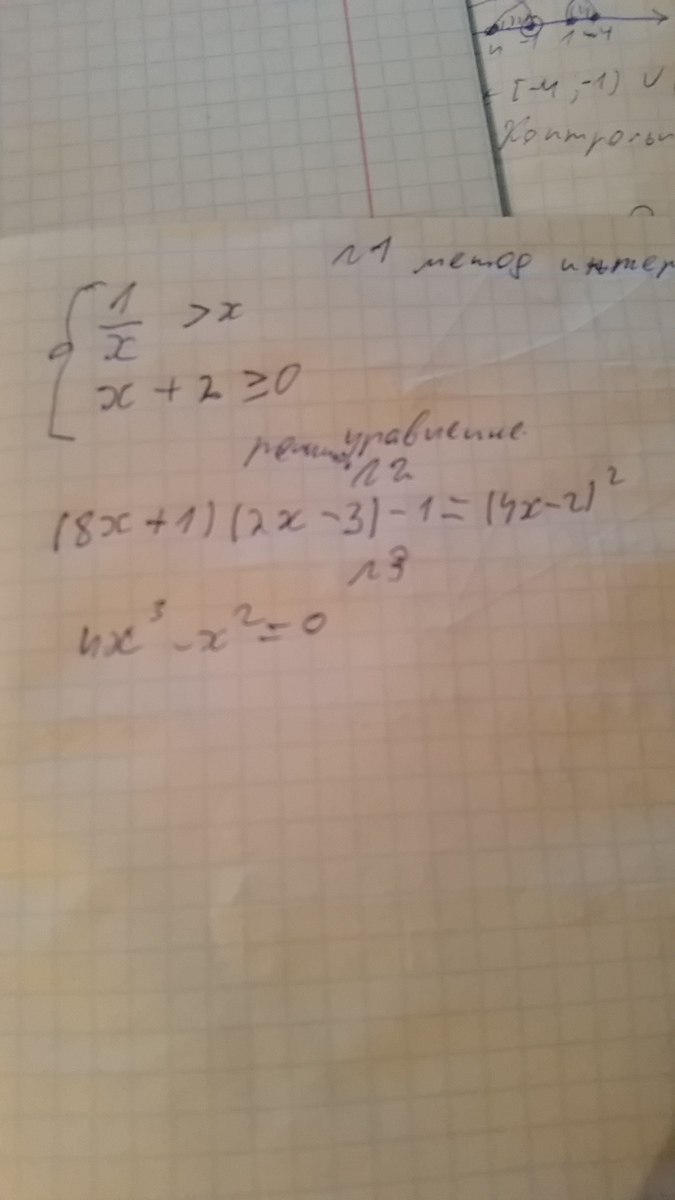 [-4, -1) ∪
№1 метод интер
{ 1/x > x
x + 2 ≥ 0
реши уравнение
№2
(8x + 1)(2x - 3) - 1 = (4x - 2)²
№3
4x³ - x² = 0